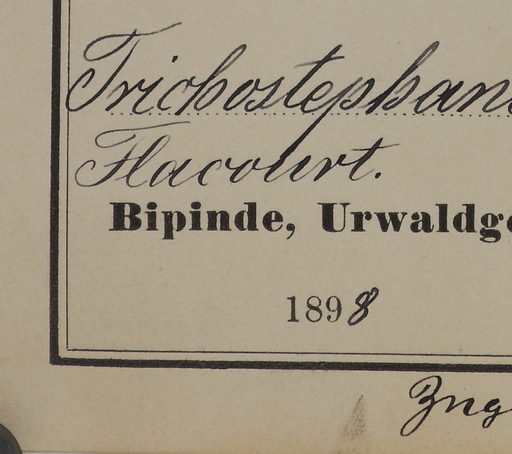 Trichostephan
Flacourt.
Bipinde, Urwaldge
1898